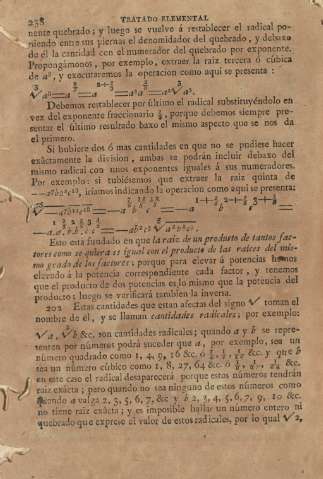 238 TRATADO ELEMENTAL
nente quebrado; y luego se vuelvo á restablecer el radical po-
niendo entre sus piernas el denominador del quebrado, y debaxo
de él la cantidad con el numerador del quebrado por exponente.
Propongámonos, por exemplo, extraer la raiz tercera ó cúbica
de a², y executaremos la operacion como aquí se presenta:
Debemos restablecer por último el radical substituyéndolo en
vez del exponente fraccionario porque debemos siempre pre-
sentar el último resultado baxo el mismo aspecto que se nos da
el primero.
Si hubiere dos ó mas cantidades en que no se pudiese hacer
exâctamente la division, ambas se podrán incluir debaxo del
mismo radical con unos exponentes iguales á sus numeradores.
Por exemplo: si tubiésemos que extraer la raiz quinta de
iríamos indicando la operacion como aquí se presenta:
Esto está fundado en que la raiz de un producto de tantos fac-
tores como se quiera es igual con el producto de las raices del mis-
mo grado de los factores; porque para elevar á potencias hemos
elevado á la potencia correspondiente cada factor, y tenemos
que el producto de dos potencias es lo mismo que la potencia del
producto; luego se verificará tambien la inversa.
202 Estas cantidades que estan afectas del signo √ toman el
nombre de él, y se llaman cantidades radicales; por exemplo:
√a, ∛b &c. son cantidades radicales; quando a y b se repre-
senten por números podrá suceder que a, por exemplo, sea un
número quadrado como 1, 4, 9, 16 &c. ó &c. y que b
sea un número cúbico como 1, 8, 27, 64 &c. ó &c.
en este caso el radical desaparecerá porque estos números tendrán
raiz exâcta; pero quando no sea ninguno de estos números como
siendo a valga 2, 3, 5, 6, 7, &c y b 2, 3, 4, 5, 6, 7, 9, 10 &c.
no tiene raiz exâcta; y es imposible hallar un número entero ni
quebrado que exprese el valor de estos radicales, por lo qual √2,